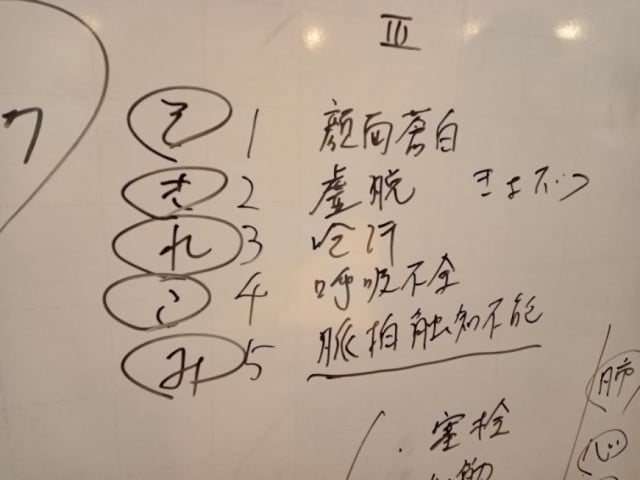 III
そ 1 顔面蒼白
き 2 虚脱 きょだつ
れ 3 冷汗
こ 4 呼吸不全
み 5 脈拍触知不能
・塞栓
肺
心